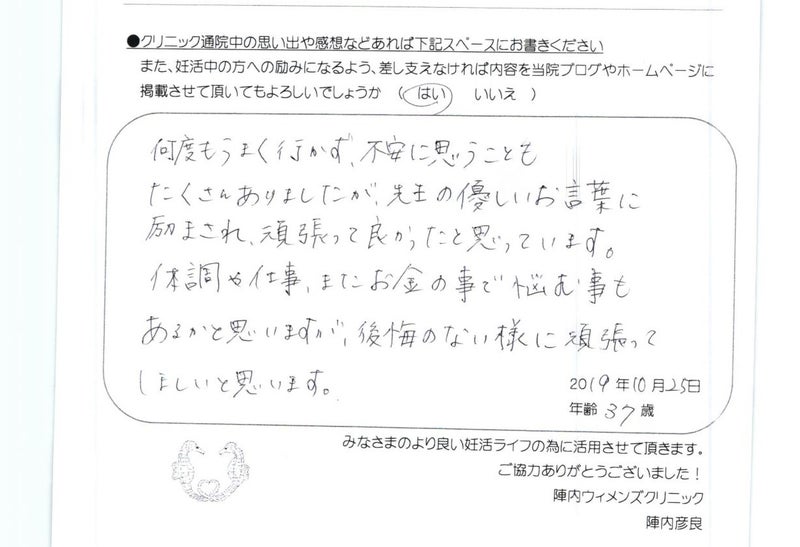 ●クリニック通院中の思い出や感想などあれば下記スペースにお書きください
また、妊活中の方への励みになるよう、差し支えなければ内容を当院ブログやホームページに
掲載させて頂いてもよろしいでしょうか （ はい いいえ ）
何度もうまく行かず、不安に思うことも
たくさんありましたが、先生の優しいお言葉に
励まされ、頑張って良かったと思っています。
体調や仕事、またお金の事で悩む事も
あるかと思いますが、後悔のない様に頑張って
ほしいと思います。
2019年10月25日
年齢 37歳
みなさまのより良い妊活ライフの為に活用させて頂きます。
ご協力ありがとうございました！
陣内ウィメンズクリニック
陣内彦良